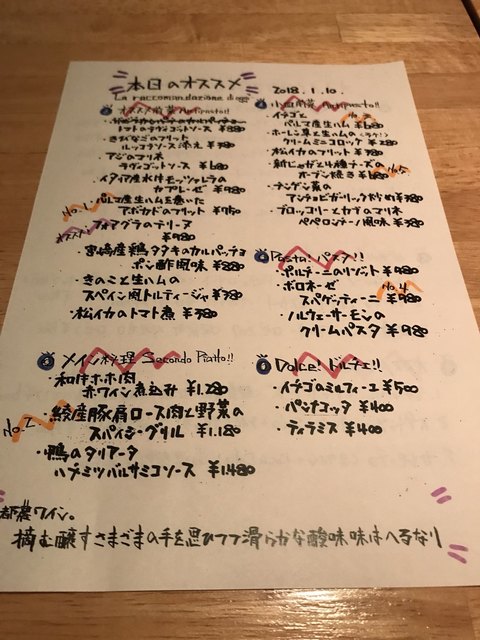 本日のオススメ
La raccomandazione di oggi
2018.1.10.
オススメ前菜 Antipasto!!
トマトのラヴィゴットソース ¥880
きびなごのフリット
ルッコラソース添え ¥780
アジのマリネ
ラヴィゴットソース ¥680
イタリア産水牛モッツァレラの
カプレーゼ ¥980
No.1
パルマ産生ハムを巻いた
アボカドのフリット ¥750
フォアグラのテリーヌ
¥980
宮崎産鶏タタキのカルパッチョ
ポン酢風味 ¥880
きのこと生ハムの
スペイン風トルティージャ ¥780
松イカのトマト煮 ¥780
③ メイン料理 Secondo Piatto!!
和牛ホホ肉
赤ワイン煮込み ¥1.280
No.2
綾産豚肩ロース肉と野菜の
スパイシーグリル ¥1.180
鴨のタリアータ
ハチミツバルサミコソース ¥1.480
小皿前菜 Antipasto!!
イチゴと
パルマ産生ハム ¥680
ホーレン草と生ハムの
クリームミニコロッケ ¥280
松イカのフリット ¥380
新じゃがと4種チーズの
オーブン焼き ¥680
チンゲン菜の
アンチョビガーリック炒め ¥380
ブロッコリーとカブのマリネ
ペペロンチーノ風味 ¥380
Pasta! パスタ!!
パルミジャーノリゾット ¥980
ボロネーゼ
No.4
スパゲッティーニ ¥980
ノルウェーサーモンの
クリームパスタ ¥980
Dolce! ドルチェ!!
イチゴのミルフィーユ ¥500
パンナコッタ ¥400
ティラミス ¥400
都農ワイン。
摘む醸すさまざまの手を思ひつつ滑らかな酸味味はへるなり